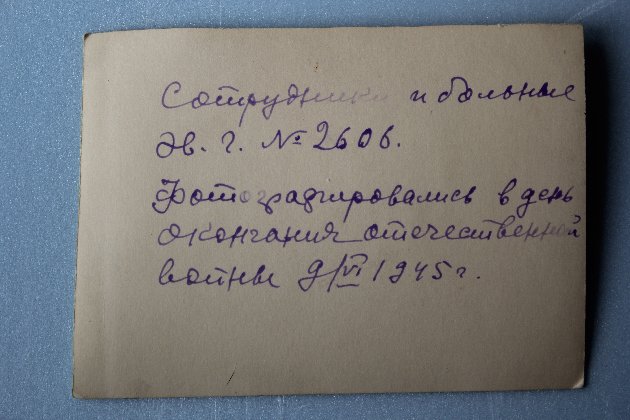 Сотрудники и больные
Эв. г. № 2606.
Фотографировались в день
окончания отечественной
войны 9/VI 1945 г.